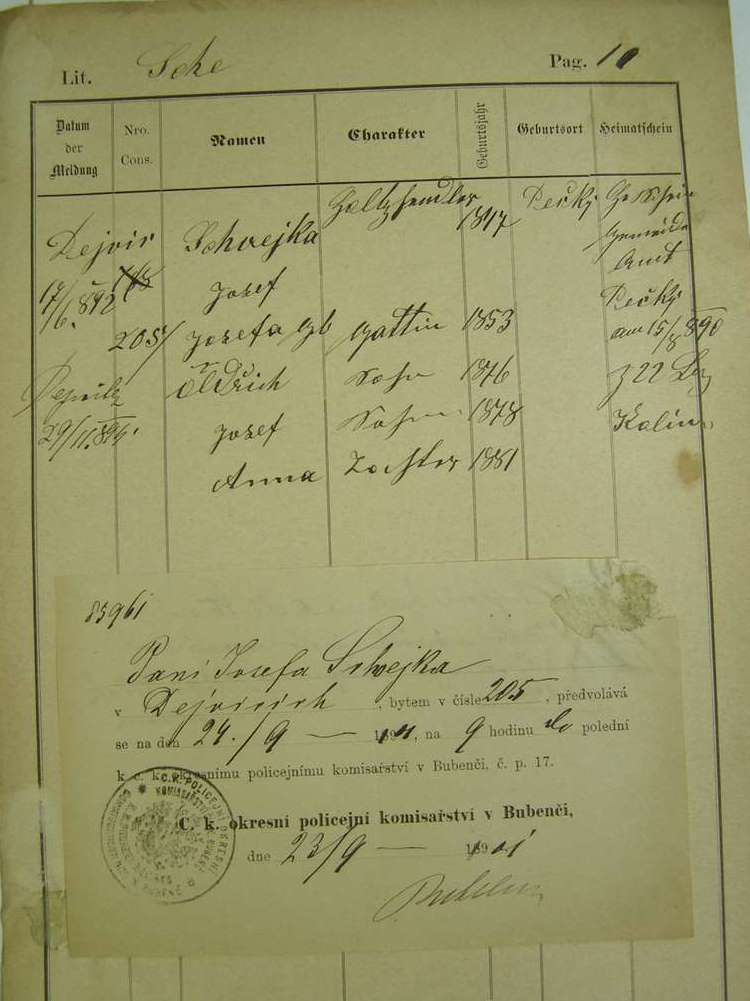 Lit. Sche Pag. 10
Datum der Meldung Nro. Cons. Namen Charakter Geburtsjahr Geburtsort Heimatschein
Holtzhendler 1847 Pečky
Dejvic Schwejka Gemeinde
17/6. 892 Josef Amt
Pečky
205/ Josefa Gattin 1853 am 15/8 890
Oldřich Sohn 1876 Z 22
29/11. Josef Sohn 1878 Kolin
Anna Tochter 1881
83961
Paní Josefa Schwejka
v Dejvicích, bytem v čísle 205, předvolává
se na den 24./9 — 189, na 9 hodinu do polední
k c. k. okresnímu policejnímu komisařství v Bubenči, č. p. 17.
C. k. okresní policejní komisařství v Bubenči,
dne 23/9 — 189
C.K. POLICEJNÍ OKRESNÍ
KOMISAŘSTVÍ